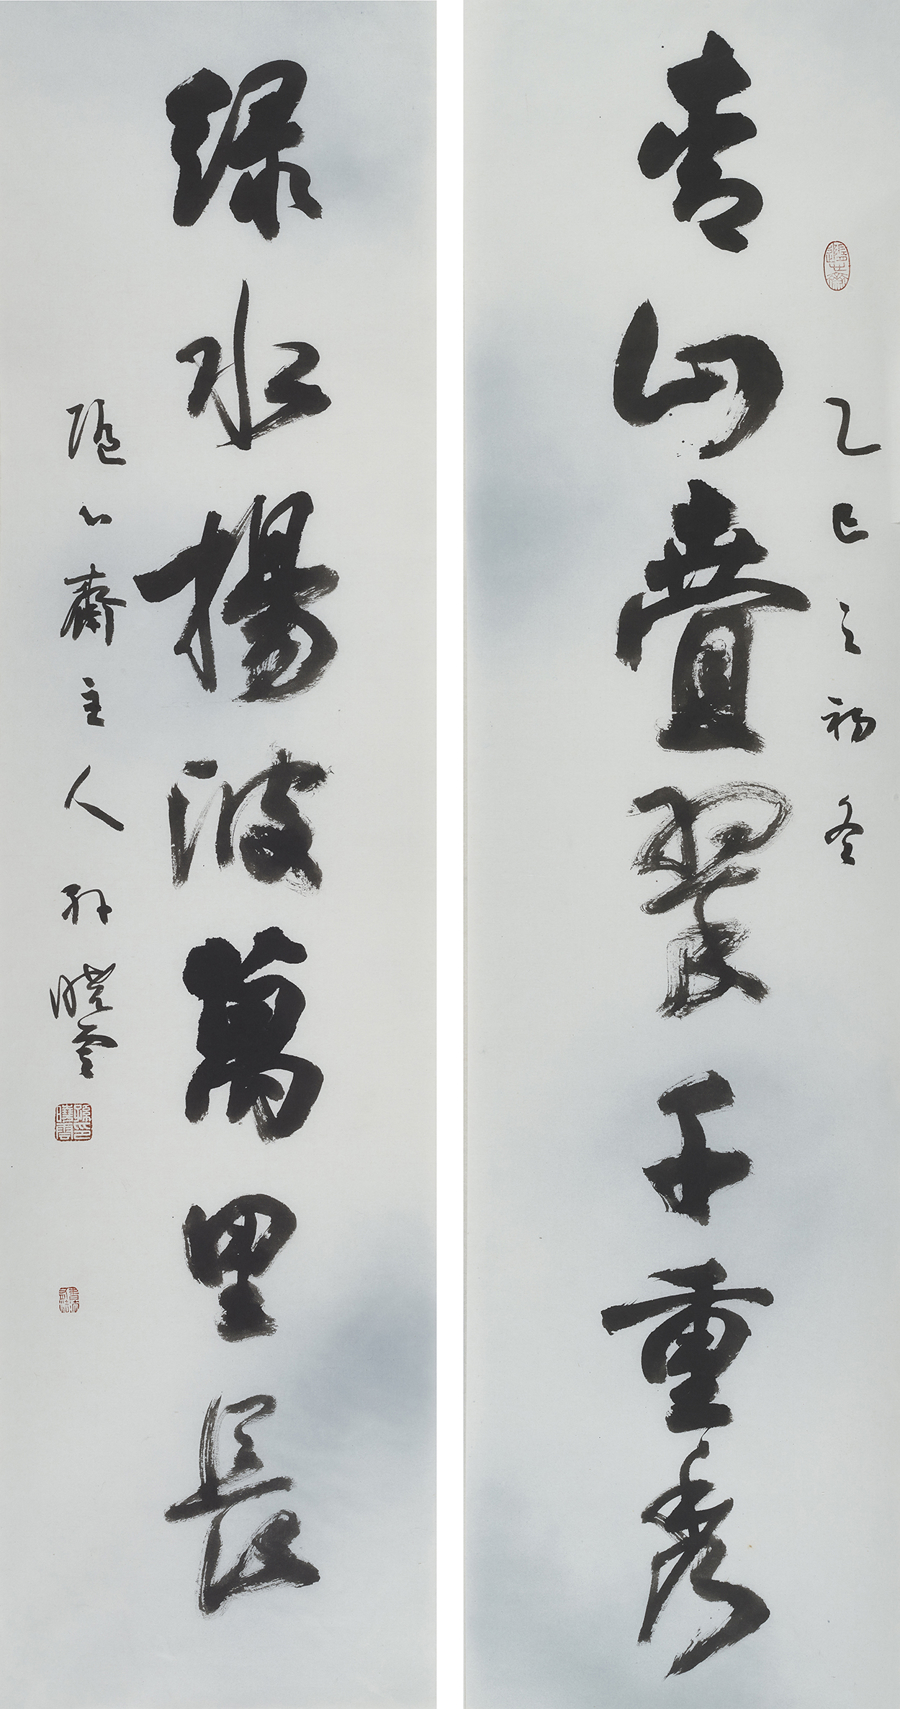 乙巳之初冬
青山疊翠千重秀
綠水揚波萬里長
隱心齋主人孙晓雲